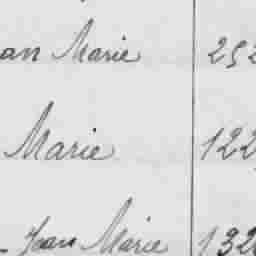 an Marie 252
Marie 122
Jean Marie 132